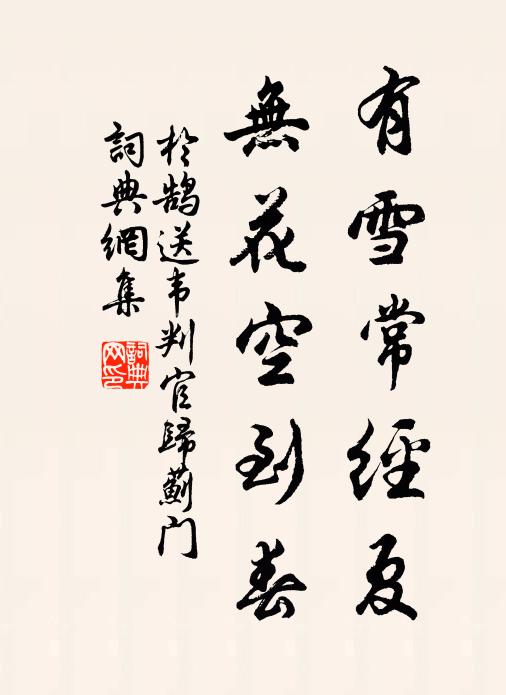 有雪常經夏
無花空到春
於鵠送韦判官歸薊门
詞典網集
詞典网印